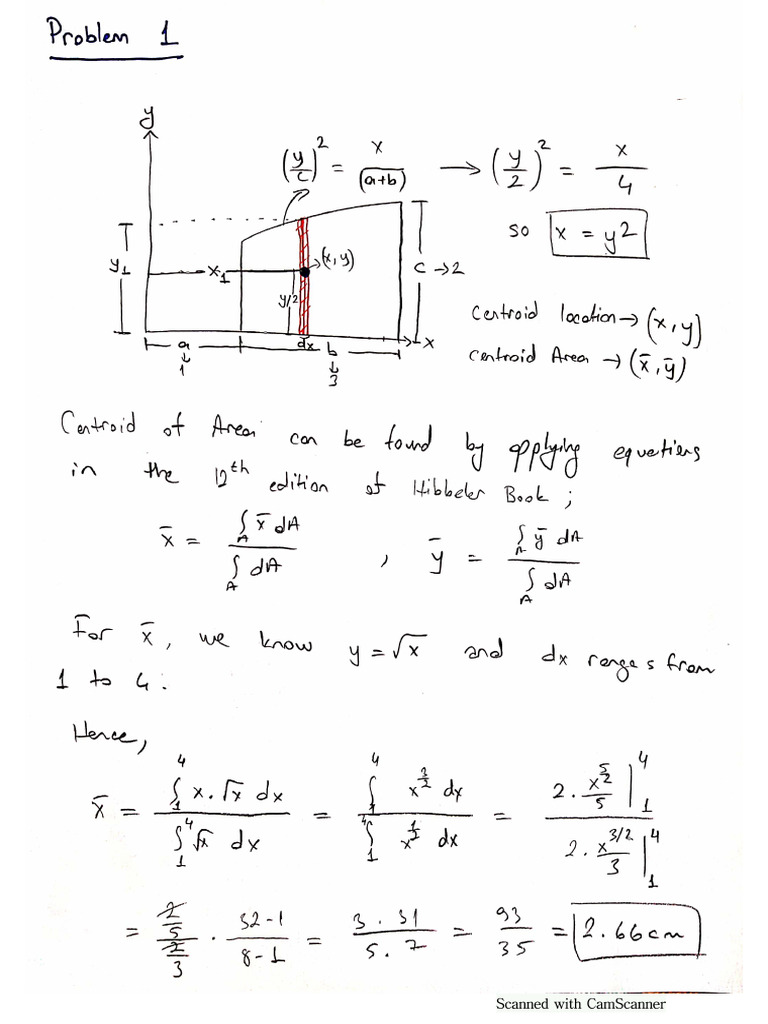 Problem 1
y
(y/c)² = x/(a+b) → (y/2)² = x/4
so x = y²
y₁
x₁
(x, y)
c → 2
y/2
x
a
dx
b
1
3
Centroid location → (x, y)
Centroid Area → (x̄, ȳ)
Centroid of Area can be found by applying equations
in the 12th edition of Hibbeler Book;
x̄ = ∫_A x̄ dA / ∫_A dA , ȳ = ∫_A ȳ dA / ∫_A dA
For x̄, we know y = √x and dx ranges from
1 to 4.
Hence,
x̄ = ∫₁⁴ x.√x dx / ∫₁⁴ √x dx = ∫₁⁴ x^(3/2) dx / ∫₁⁴ x^(1/2) dx = 2 . x^(5/2)/5 |₁⁴ / 2 . x^(3/2)/3 |₁⁴
= (2/5)/(2/3) . (32-1)/(8-1) = (3 . 31)/(5 . 7) = 93/35 = 2.66 cm
Scanned with CamScanner